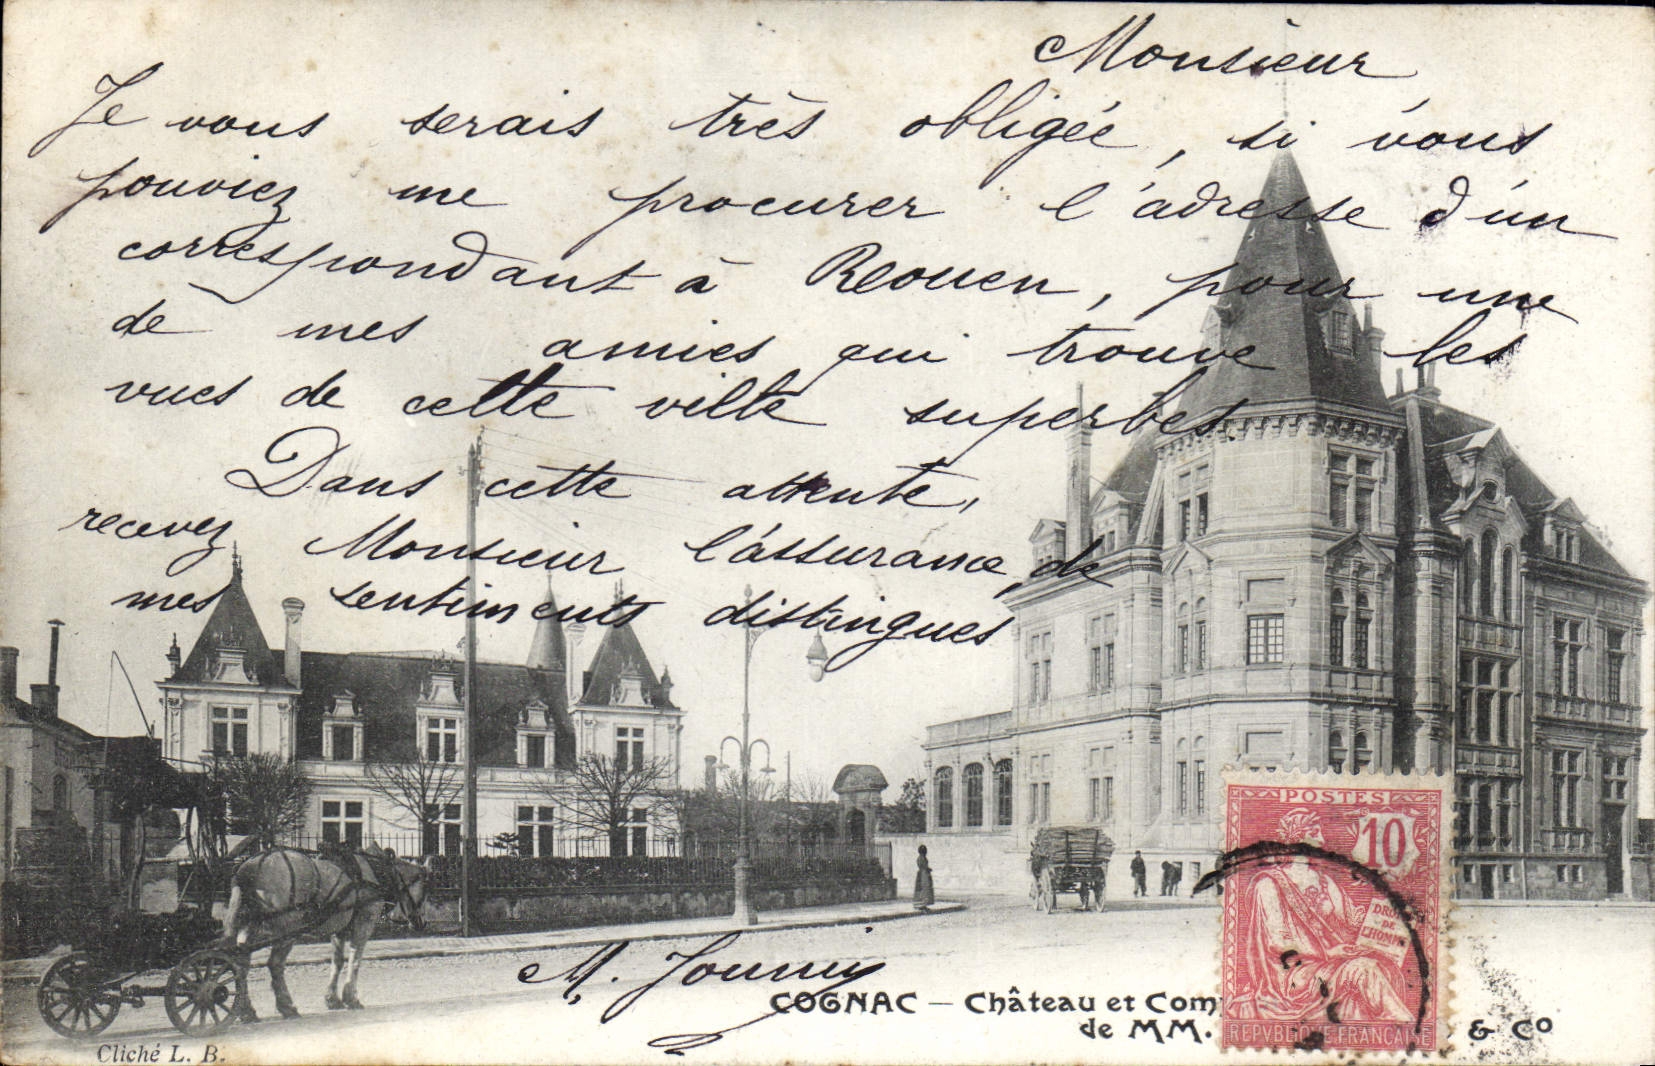 Monsieur
Je vous serais très obligée, si vous
pouviez me procurer l'adresse d'un
correspondant à Rouen, pour une
de mes amies qui trouve les
vues de cette ville superbes.
Dans cette attente,
recevez Monsieur l'assurance de
mes sentiments distingués
M.
COGNAC — Château et Com
de MM. & Co
Cliché L. B.
POSTES
10
DROITS
DE
L'HOMME
REPVBLIQUE FRANÇAISE